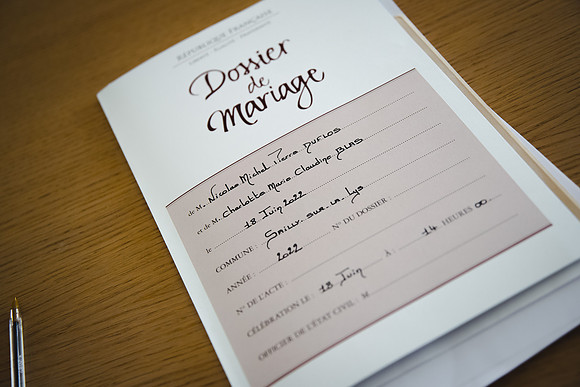 RÉPUBLIQUE FRANÇAISE
Dossier
de
Mariage
de M. Nicolas Michel Pierre DUFLOS
et de M. Charlotte Marie Claudine BLAS
le 18 Juin 2022
COMMUNE : SAILLY-SUR-LA-LYS
ANNÉE : 2022 N° DU DOSSIER :
N° DE L'ACTE :
CÉLÉBRATION LE : 18 Juin À : 14 HEURES 00
OFFICIER DE L'ÉTAT CIVIL : M